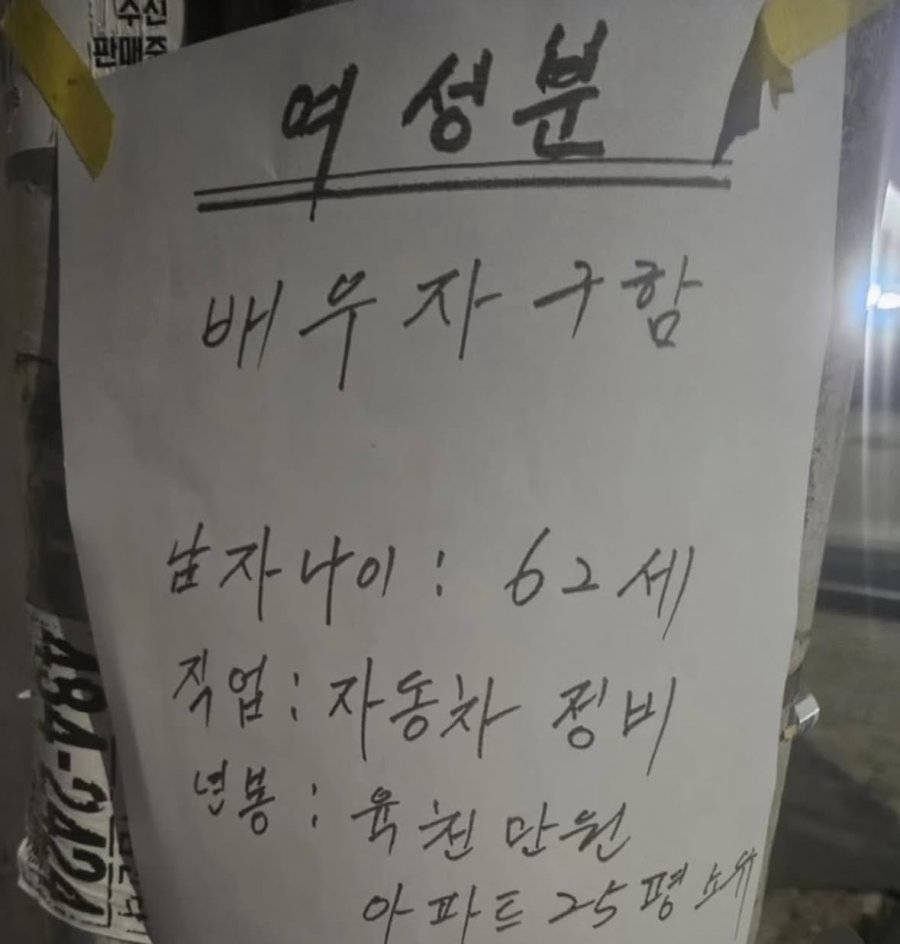 수선
판매
여성분
배우자 구함
남자나이 : 62세
직업 : 자동차 정비
년봉 : 육천만원
아파트 25평 소유
484-2424